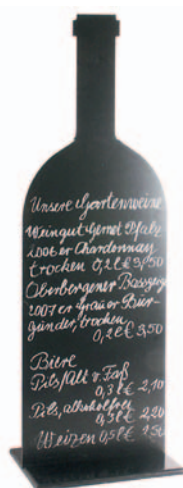 Unsere Gartenweine
Weingut Gernet Pfalz
2006er Chardonnay
trocken 0,2l € 3,50
Oberbergener Bassgeige
2007er Grauer Bur-
gunder, trocken
0,2l € 3,50
Biere
Pils/Alt v. Faß
0,3l € 2,10
Pils, alkoholfrei
0,3l € 2,20
Weizen 0,5l €